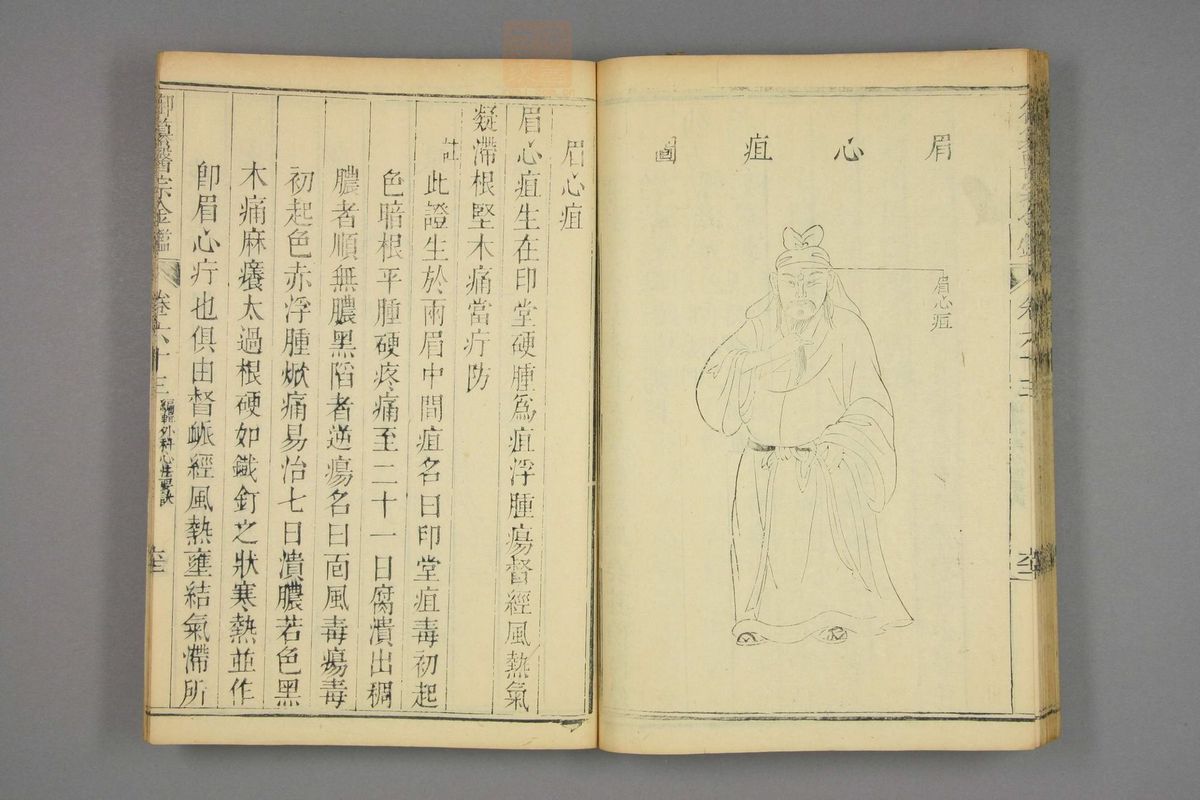 眉心疽圖
眉心疽
眉心疽
眉心疽生在印堂硬腫爲疽浮腫瘍督經風熱氣
凝滯根堅木痛當疔防
註此證生於兩眉中間疽名曰印堂疽毒初起
色暗根平腫硬疼痛至二十一日腐潰出稠
膿者順無膿黑陷者逆瘍名曰面風毒瘍毒
初起色赤浮腫焮痛易治七日潰膿若色黑
木痛麻癢太過根硬如鐵釘之狀寒熱並作
卽眉心疔也俱由督䘑經風熱壅結氣滯所
御纂醫宗金鑑 卷六十三 編輯外科心法要訣